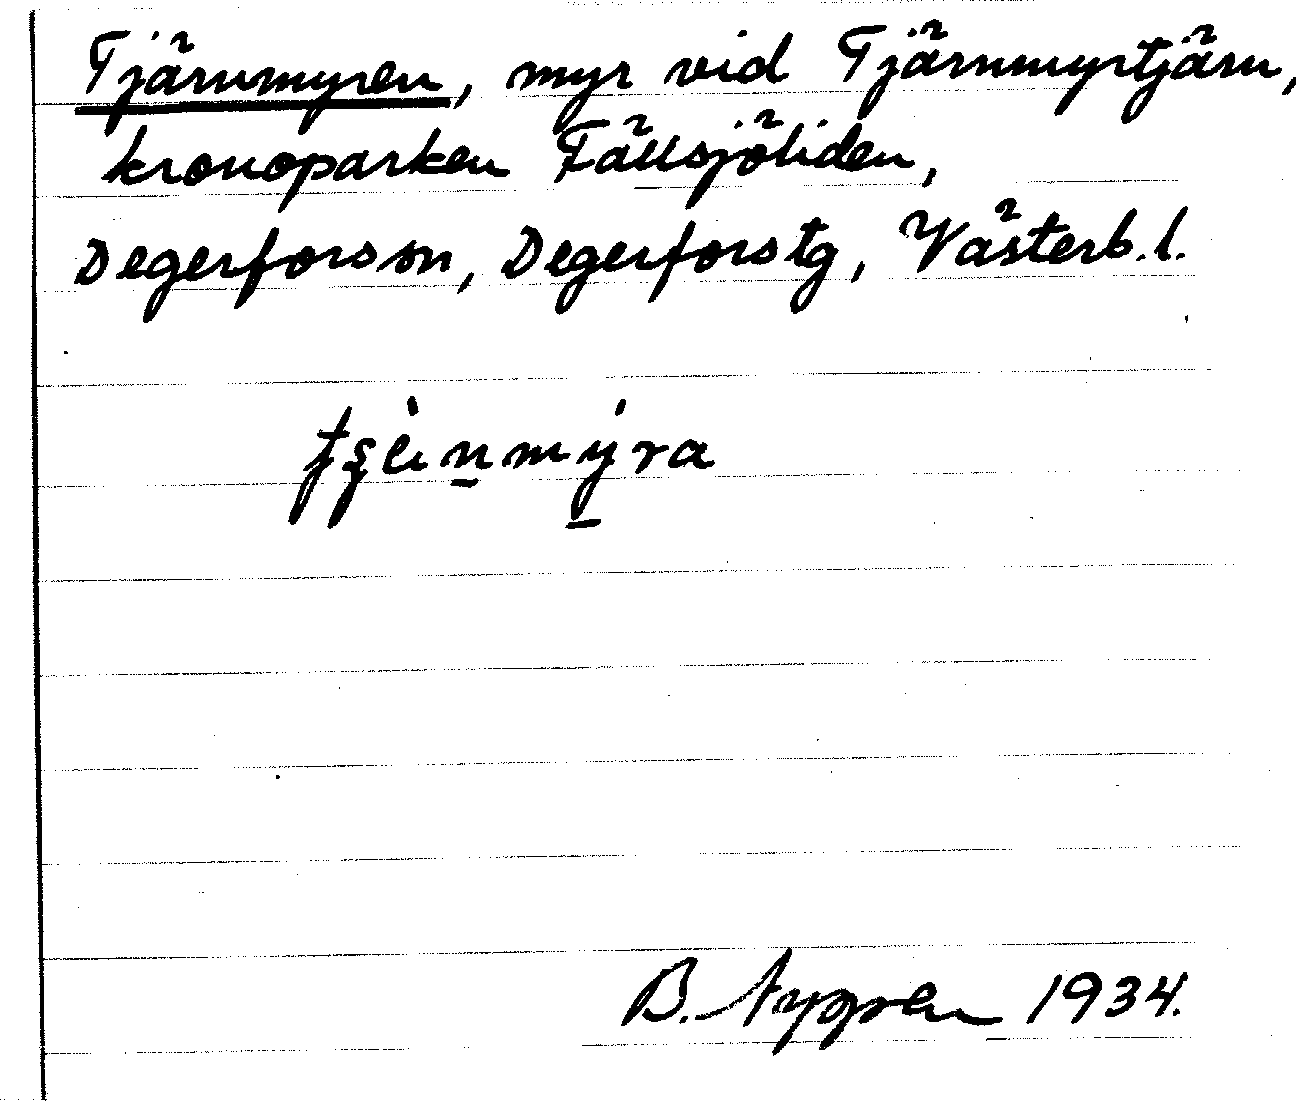 Tjärnmyren, myr vid Tjärnmyrtjärn,
kronoparken Fällsjöliden,
Degerfors sn, Degerfors tg, Västerb. l.
B. Nygren 1934.